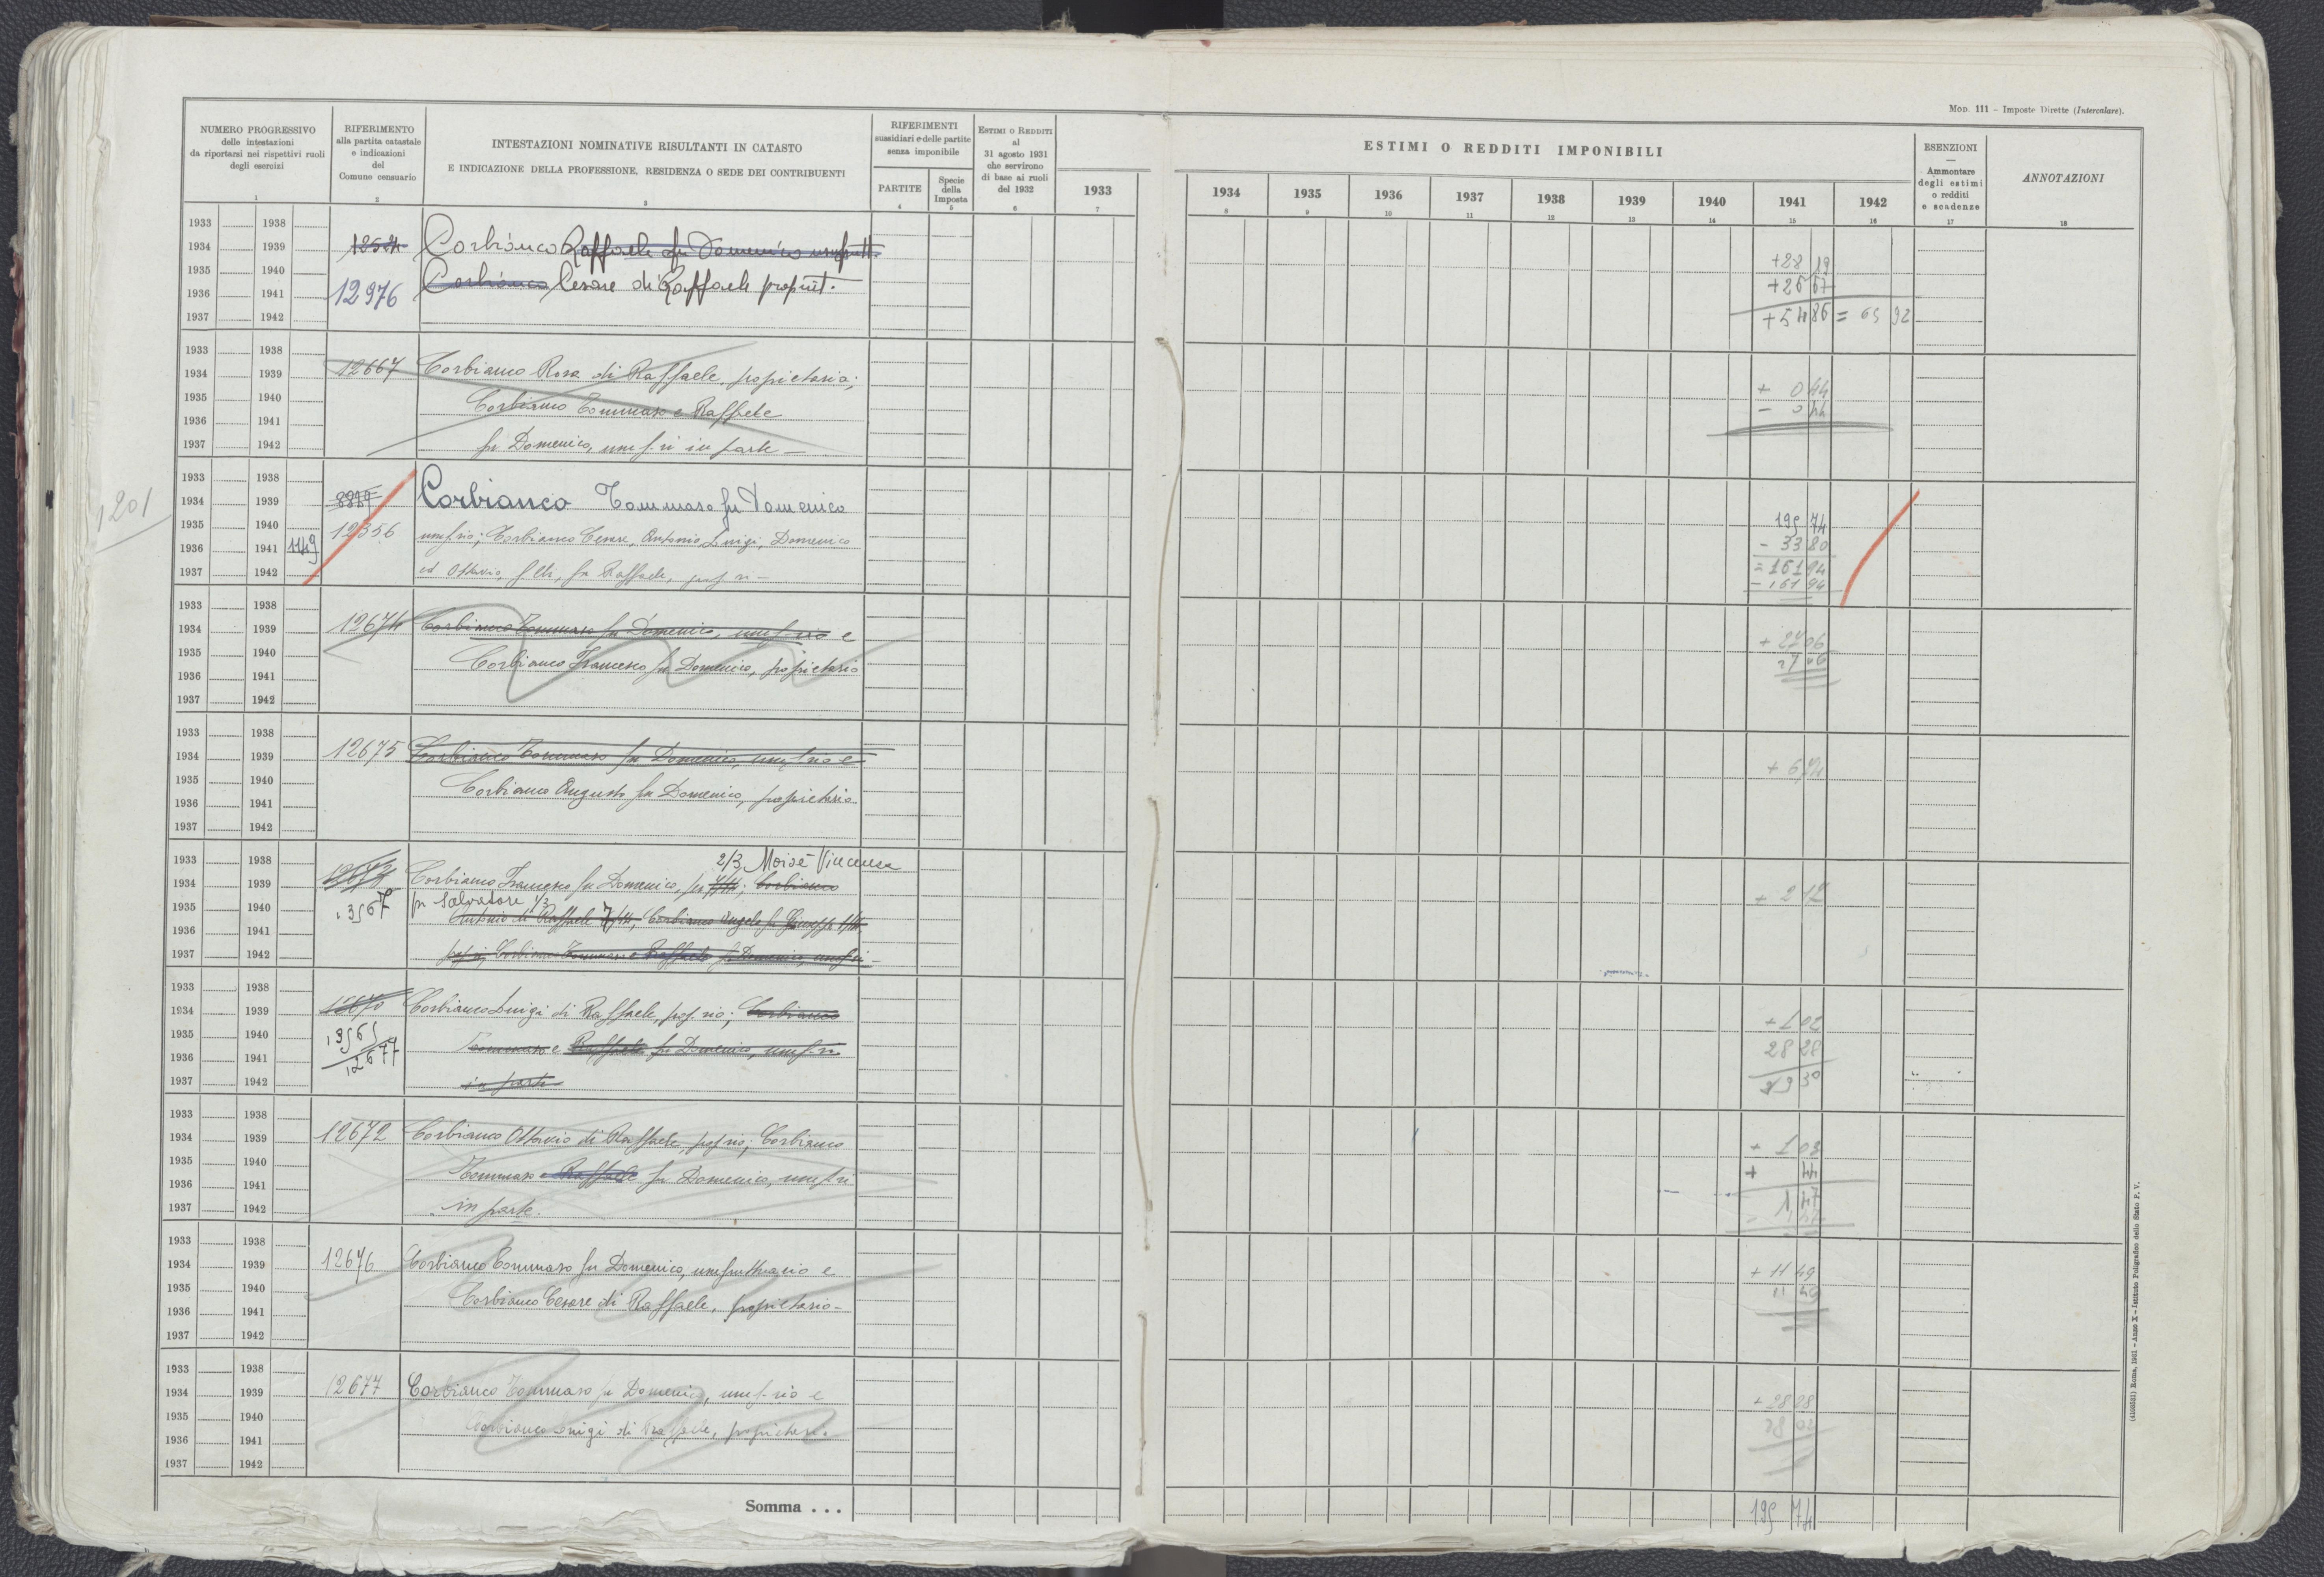 MOD. 111 - Imposte Dirette (Intercalare).
NUMERO PROGRESSIVO
delle intestazioni
da riportarsi nei rispettivi ruoli
degli esercizi
1
RIFERIMENTO
alla partita catastale
e indicazioni
del
Comune censuario
2
INTESTAZIONI NOMINATIVE RISULTANTI IN CATASTO
E INDICAZIONE DELLA PROFESSIONE, RESIDENZA O SEDE DEI CONTRIBUENTI
3
RIFERIMENTI
sussidiari e delle partite
senza imponibile
PARTITE
4
Specie
della
Imposta
5
ESTIMI O REDDITI
al
31 agosto 1931
che servirono
di base ai ruoli
del 1932
6
ESTIMI O REDDITI IMPONIBILI
1933
7
1934
8
1935
9
1936
10
1937
11
1938
12
1939
13
1940
14
1941
15
1942
16
ESENZIONI
—
Ammontare
degli estimi
o redditi
e scadenze
17
ANNOTAZIONI
18
1933 1938
1934 1939 12524 Corbianco Raffaele fu Domenico usufrutt. +28 19
1935 1940 +26 67
1936 1941 12976 Corbianco Cesare di Raffaele propriet.
1937 1942 +54 86 = 65 92
1933 1938
1934 1939 12667 Corbianco Rosa di Raffaele, proprietaria; + 0 44
1935 1940 Corbianco Tommaso e Raffaele - 0 44
1936 1941
1937 1942 fu Domenico, usuf.ri in parte —
1201
1933 1938
1934 1939 Corbianco Tommaso fu Domenico 195 74
1935 1940 12356 usuf.rio; Corbianco Cesare, Antonio, Luigi, Domenico - 33 80
1936 1941 1149 = 161 94
1937 1942 ed Ottavio, f.lli, fu Raffaele, - 161 94
1933 1938
1934 1939 12674 Corbianco Tommaso fu Domenico, usuf.rio e + 27 06
1935 1940 Corbianco Francesco fu Domenico, proprietario 27 06
1936 1941
1937 1942
1933 1938
1934 1939 12675 Corbianco Tommaso fu Domenico, usuf.rio e + 6 74
1935 1940 Corbianco Augusto fu Domenico, proprietario
1936 1941
1937 1942
1933 1938 2/3 Moisè Vincenza
1934 1939 Corbianco Francesco fu Domenico, per Corbianco + 2 12
1935 1940 13567 fu Salvatore 1/3
1936 1941 Antonio di Raffaele 7/14, Corbianco Angelo fu Giuseppe
1937 1942 Corbianco Tommaso e Raffaele fu Domenico, usuf.ri
1933 1938
1934 1939 12670 Corbianco Luigi di Raffaele, prop.rio; Corbianco + 1 02
1935 1940 13565 Tommaso e Raffaele fu Domenico, usuf.ri 28 28
1936 1941 12677
1937 1942 in parte 29 30
1933 1938
1934 1939 12672 Corbianco Ottavio di Raffaele, prop.rio; Corbianco + 1 03
1935 1940 Tommaso e Raffaele fu Domenico, usuf.ri + 44
1936 1941 1 47
1937 1942 in parte. - 1 47
1933 1938
1934 1939 12676 Corbianco Tommaso fu Domenico, usufruttuario e + 11 49
1935 1940 Corbianco Cesare di Raffaele, proprietario — 11 49
1936 1941
1937 1942
1933 1938
1934 1939 12677 Corbianco Tommaso fu Domenico, usuf.rio e + 28 28
1935 1940 Corbianco Luigi di Raffaele, proprietario
1936 1941
1937 1942
Somma . . . 195 74
(4103531) Roma, 1931 - Anno X - Istituto Poligrafico dello Stato P. V.